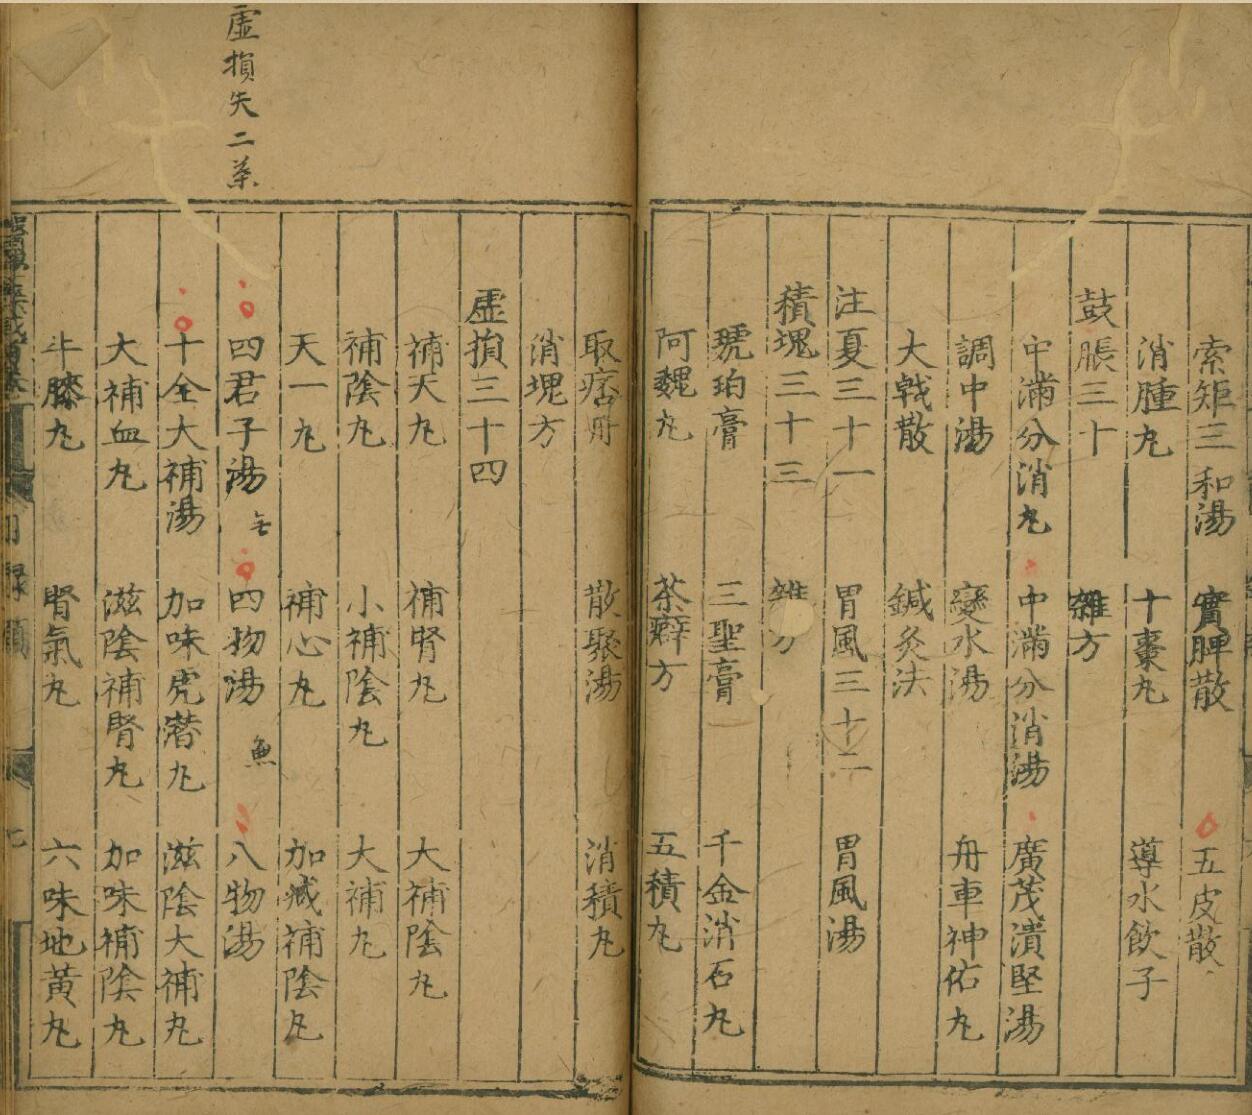 索矩三和湯 實脾散 五皮散
消腫丸 十棗丸 導水飲子
鼓脹三十 雜方
中滿分消丸 中滿分消湯 廣茂潰堅湯
調中湯 變水湯 舟車神佑丸
大戟散 鍼灸法
注夏三十一 胃風三十二 胃風湯
積塊三十三 雜方
琥珀膏 三聖膏 千金消石丸
阿魏丸 茶癖方 五積丸
取痞丹 散聚湯 消積丸
消塊方
虛損三十四
補天丸 補腎丸 大補陰丸
補陰丸 小補陰丸 大補丸
天一丸 補心丸 加減補陰丸
虛損失二葉
四君子湯 四物湯 八物湯
十全大補湯 加味虎潛丸 滋陰大補丸
大補血丸 滋陰補腎丸 加味補陰丸
牛膝丸 腎氣丸 六味地黃丸